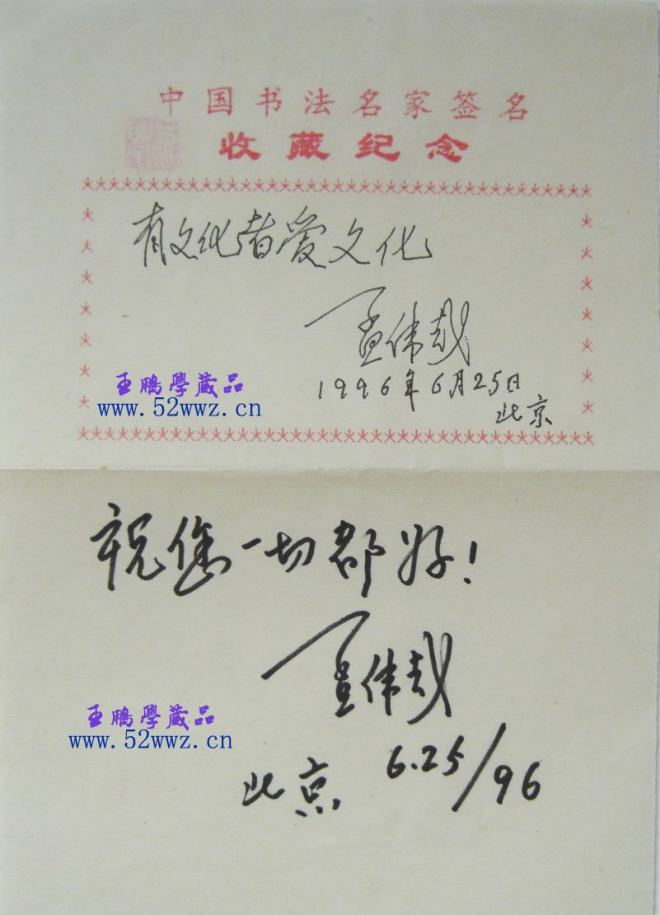 中国书法名家签名
收藏纪念
有文化者爱文化
孟伟哉
1996年6月25日
北京
王鵬學藏品
www.52wwz.cn
祝您一切都好！
孟伟哉
北京 6.25/96
王鵬學藏品
www.52wwz.cn